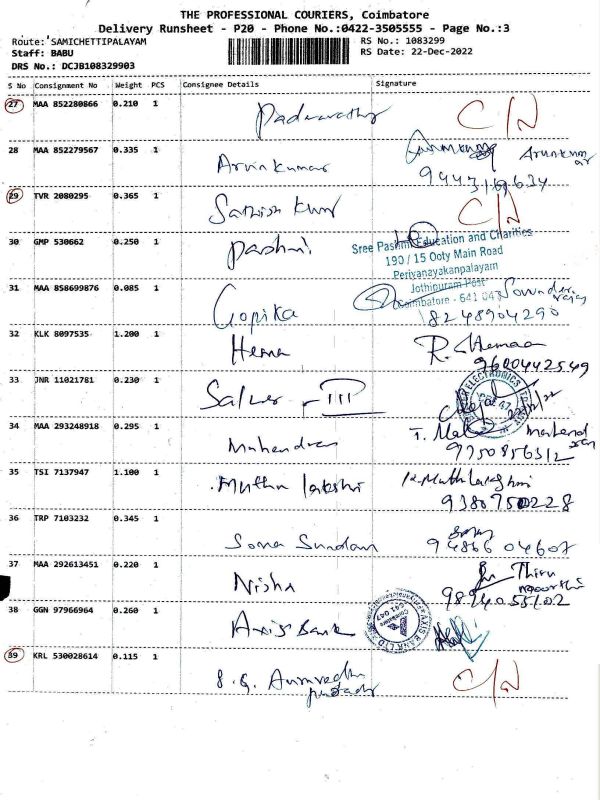 THE PROFESSIONAL COURIERS, Coimbatore
Delivery Runsheet - P20 - Phone No.:0422-3505555 - Page No.:3
Route: SAMICHETTIPALAYAM
RS No.: 1083299
Staff: BABU
RS Date: 22-Dec-2022
DRS No.: DCJB108329903
S No Consignment No Weight PCS Consignee Details Signature
27 MAA 852280866 0.210 1 C/N
28 MAA 852279567 0.335 1 Arvinkumar Arunkumar
29 TVR 2080295 0.365 1 C/N
30 GMP 530662 0.250 1
Sree Pashmi Education and Charities
190 / 15 Ooty Main Road
Periyanayakanpalayam
Jothipuram Post
Coimbatore - 641 047
31 MAA 858699876 0.085 1 Gopika
8248904290
32 KLK 8097535 1.200 1 Hema R. Hemaa
9600442549
33 JNR 11021781 0.230 1
34 MAA 293248918 0.295 1 Mahendran
9750856312
35 TSI 7137947 1.100 1 Muthu lakshmi
9380750228
36 TRP 7103232 0.345 1 Soma Sundaram
94866 04607
37 MAA 292613451 0.220 1 Nisha
9894055102
38 GGN 97966964 0.260 1 Axis Bank
AXIS BANK LTD
39 KRL 530028614 0.115 1 C/N